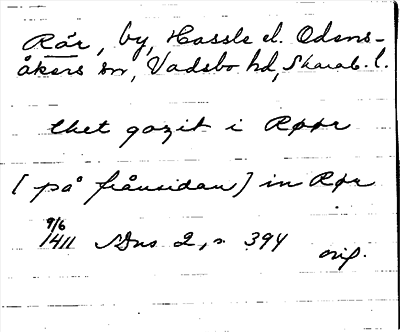 Rör, by, Hassle el. Odens-
åkers sn, Vadsbo hd, Skarab. l.
thet gozit i Røør
[på frånsidan] in Rør
9/6
1411 SDns 2, s. 394 orig.